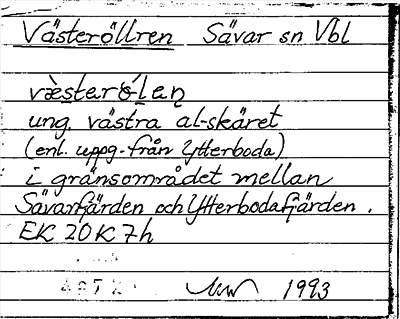 Västeröllren Sävar sn Vbl
væ̀sterö́len̥
ung. västra al-skäret
(enl. uppg. från Ytterboda)
i gränsområdet mellan
Sävarfjärden och Ytterbodafjärden.
EK 20K 7h
1993